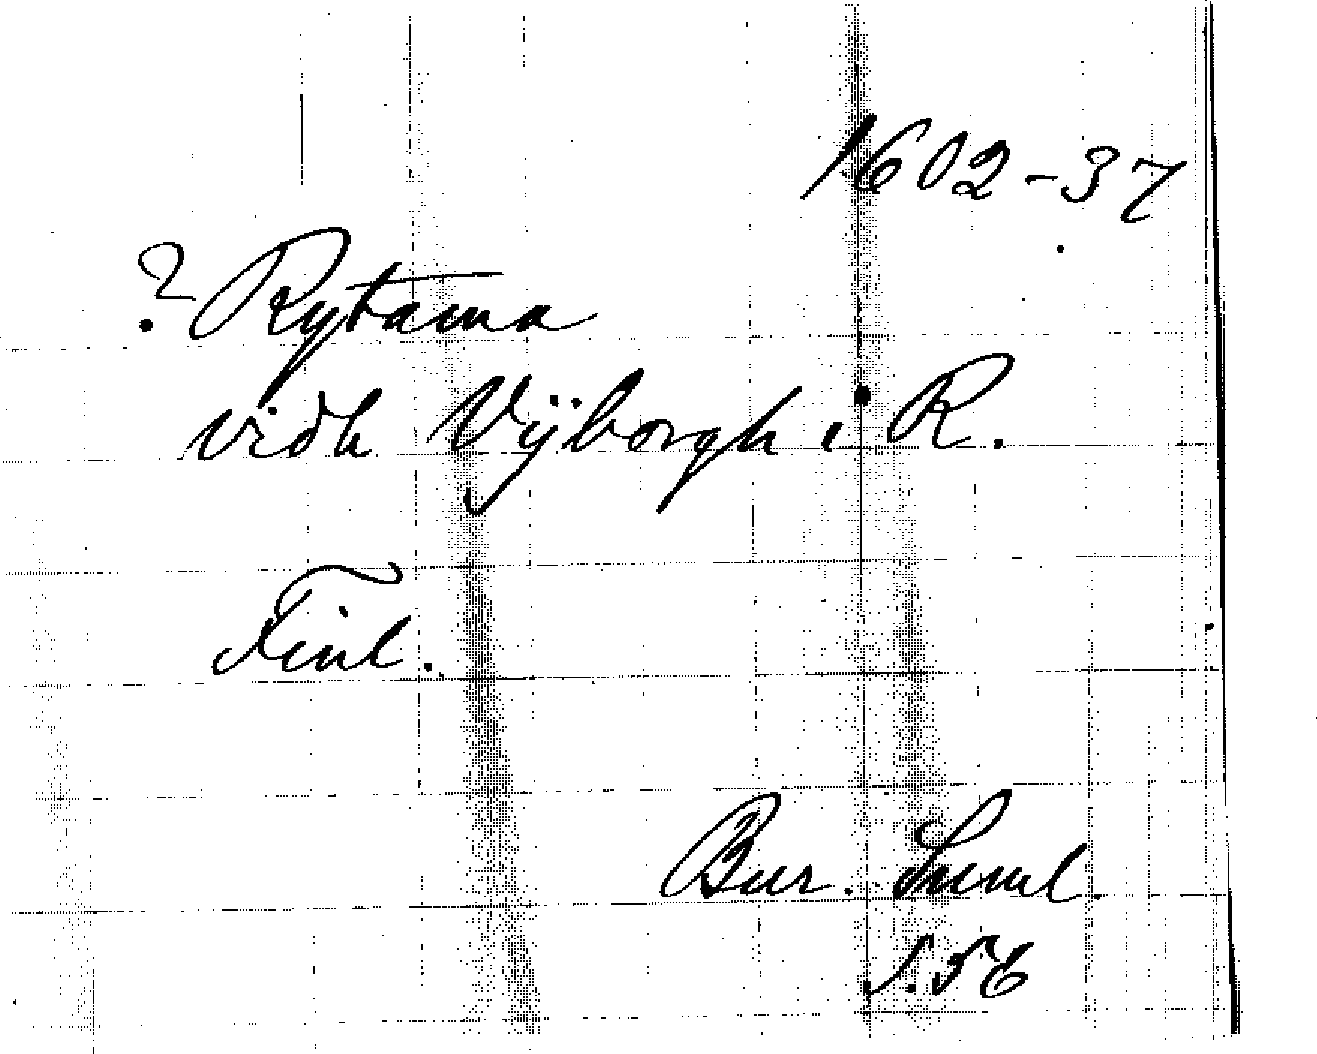 1602-37
? Rytama
vidh Vÿborgh i R.
Finl.
Bur. Suml.
s. 56